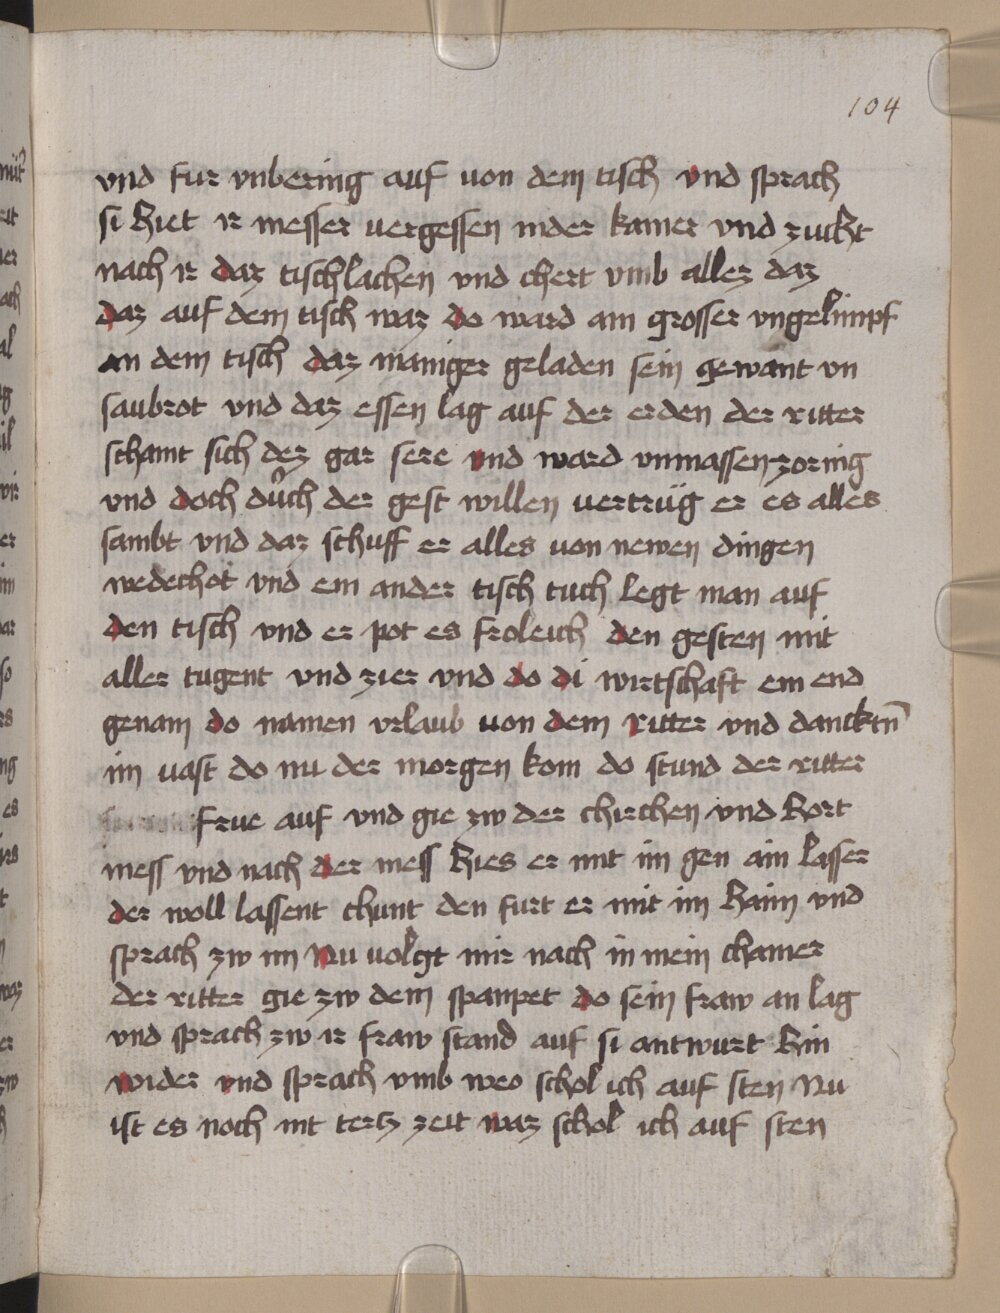 104
vnd fur vnbering auf von dem tisch vnd sprach
si hiet ir messer vergessen inder kamer vnd zucht
nach ir daz tischlachen vnd chert vmb allez daz
daz auf dem tisch waz do ward ain grosser vngelimpf
an dem tisch daz maniger geladen sein gewant vn
saubrot vnd daz essen lag auf der erden der ritter
schamt sich dez gar sere vnd ward vnmassen zornig
vnd doch duͦch der gest willen vertrüg er es alles
sambt vnd daz schuff er alles von newen dingen
wedechet vnd ein ander tisch tuch legt man auf
den tisch vnd er pot es froleich den gesten mit
aller tugent vnd zier vnd do di wirtschaft ein end
genam do namen vrlaub von dem ritter vnd dancktn̄
im vast do nu der morgen kom do stund der ritter
frue auf vnd gie zw der chirchen vnd hort
mess vnd nach der mess hies er mit im gen ain lasser
der woll lassent chunt den furt er mit im haim vnd
sprach zw im Nu volgt mir nach in mein chamer
der ritter gie zw dem spanpet do sein fraw an lag
vnd sprach zw ir fraw stand auf si antwurt hin
wider vnd sprach vmb weo schol ich auf sten Nu
ist es noch nit tertz zeit waz schol ich auf sten